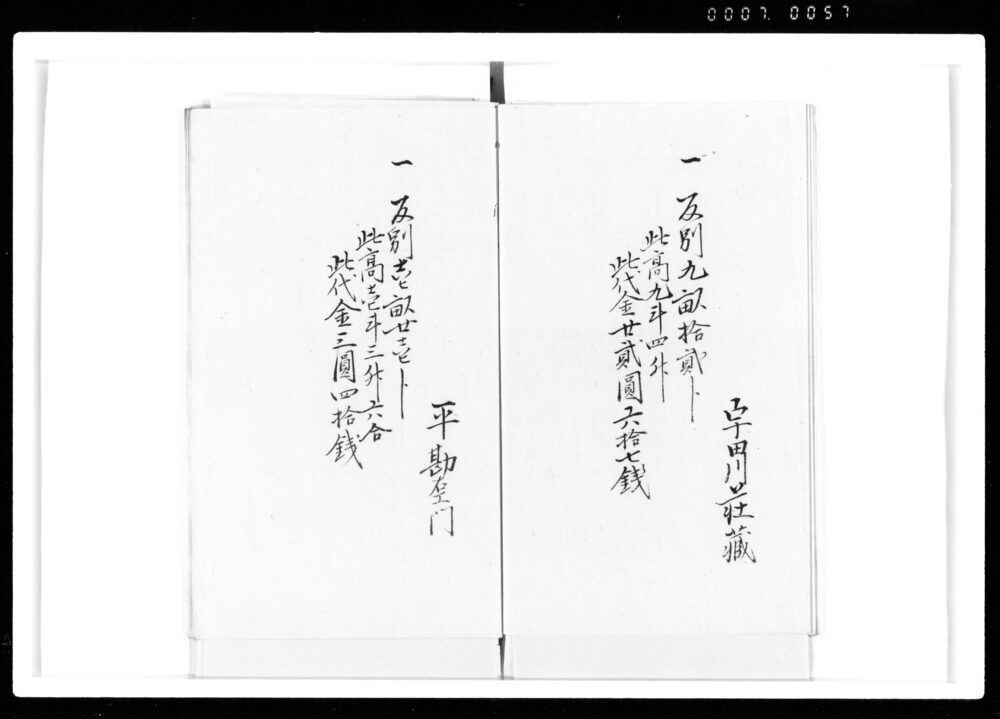 0007.0057
一 反別九畝拾貳歩
此高九斗四升
此代金廿貳圓六拾七錢
宇田川荘藏
一 反別壱畝廿壱歩
此高壱斗三升六合
此代金三圓四拾錢
平勘左エ門